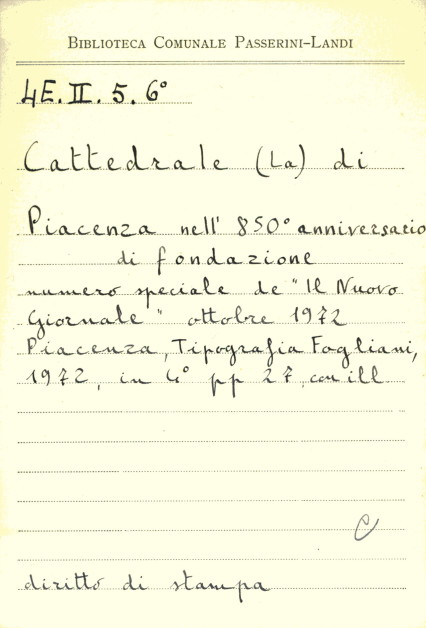 BIBLIOTECA COMUNALE PASSERINI-LANDI
4E. II. 5. 6°
Cattedrale (La) di
Piacenza nell' 850° anniversario
di fondazione
numero speciale de "Il Nuovo
Giornale" ottobre 1972
Piacenza, Tipografia Fogliani,
1972, in 4° pp 27, con ill
C
diritto di stampa